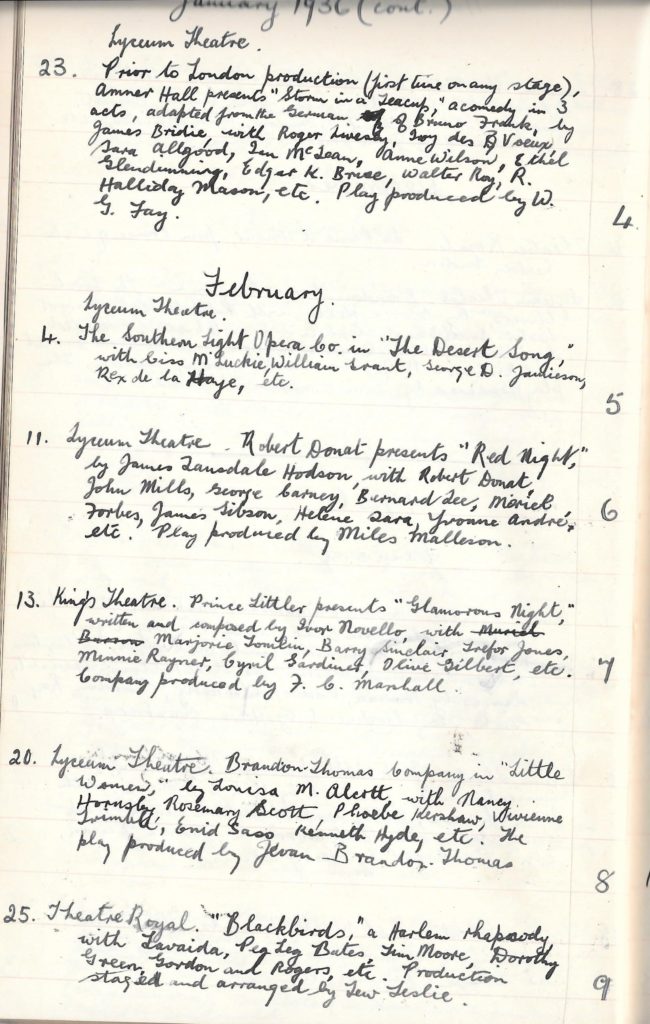 January 1936 (cont.)
Lyceum Theatre.
23. Prior to London production (first time on any stage),
Anmer Hall presents "Storm in a Teacup," a comedy in 3
acts, adapted from the German of Bruno Frank, by
James Bridie, with Roger Livesey, Ivy des Voeux,
Sara Allgood, Ian McLean, Anne Wilson, Ethel
Glendinning, Edgar K. Bruce, Walter Roy, R.
Halliday Mason, etc. Play produced by W.
G. Fay.
4
February.
Lyceum Theatre.
4. The Southern Light Opera Co. in "The Desert Song,"
with Ciss McLuckie, William Grant, George D. Jamieson,
Rex de la Haye, etc.
5
11. Lyceum Theatre. Robert Donat presents "Red Night,"
by James Lansdale Hodson, with Robert Donat,
John Mills, George Carney, Bernard Lee, Meriel
Forbes, James Gibson, Helene Zara, Yvonne André,
etc. Play produced by Miles Malleson.
6
13. King's Theatre. Prince Littler presents "Glamorous Night,"
written and composed by Ivor Novello, with Muriel
Barron Marjorie Tomlin, Barry Sinclair, Trefor Jones,
Minnie Rayner, Cyril Gardiner, Olive Gilbert, etc.
Company produced by F. C. Marshall.
7
20. Lyceum Theatre. Brandon-Thomas Company in "Little
Women," by Louisa M. Alcott, with Nancy
Hornsby, Rosemary Scott, Phoebe Kershaw, Vivienne
Enid Sass, Kenneth Hyde, etc. The
play produced by Jevan Brandon-Thomas
8
25. Theatre Royal. "Blackbirds," a Harlem rhapsody,
with Lavaida, Peg Leg Bates, Tim Moore, Dorothy
Green, Gordon and Rogers, etc. Production
staged and arranged by Lew Leslie.
9